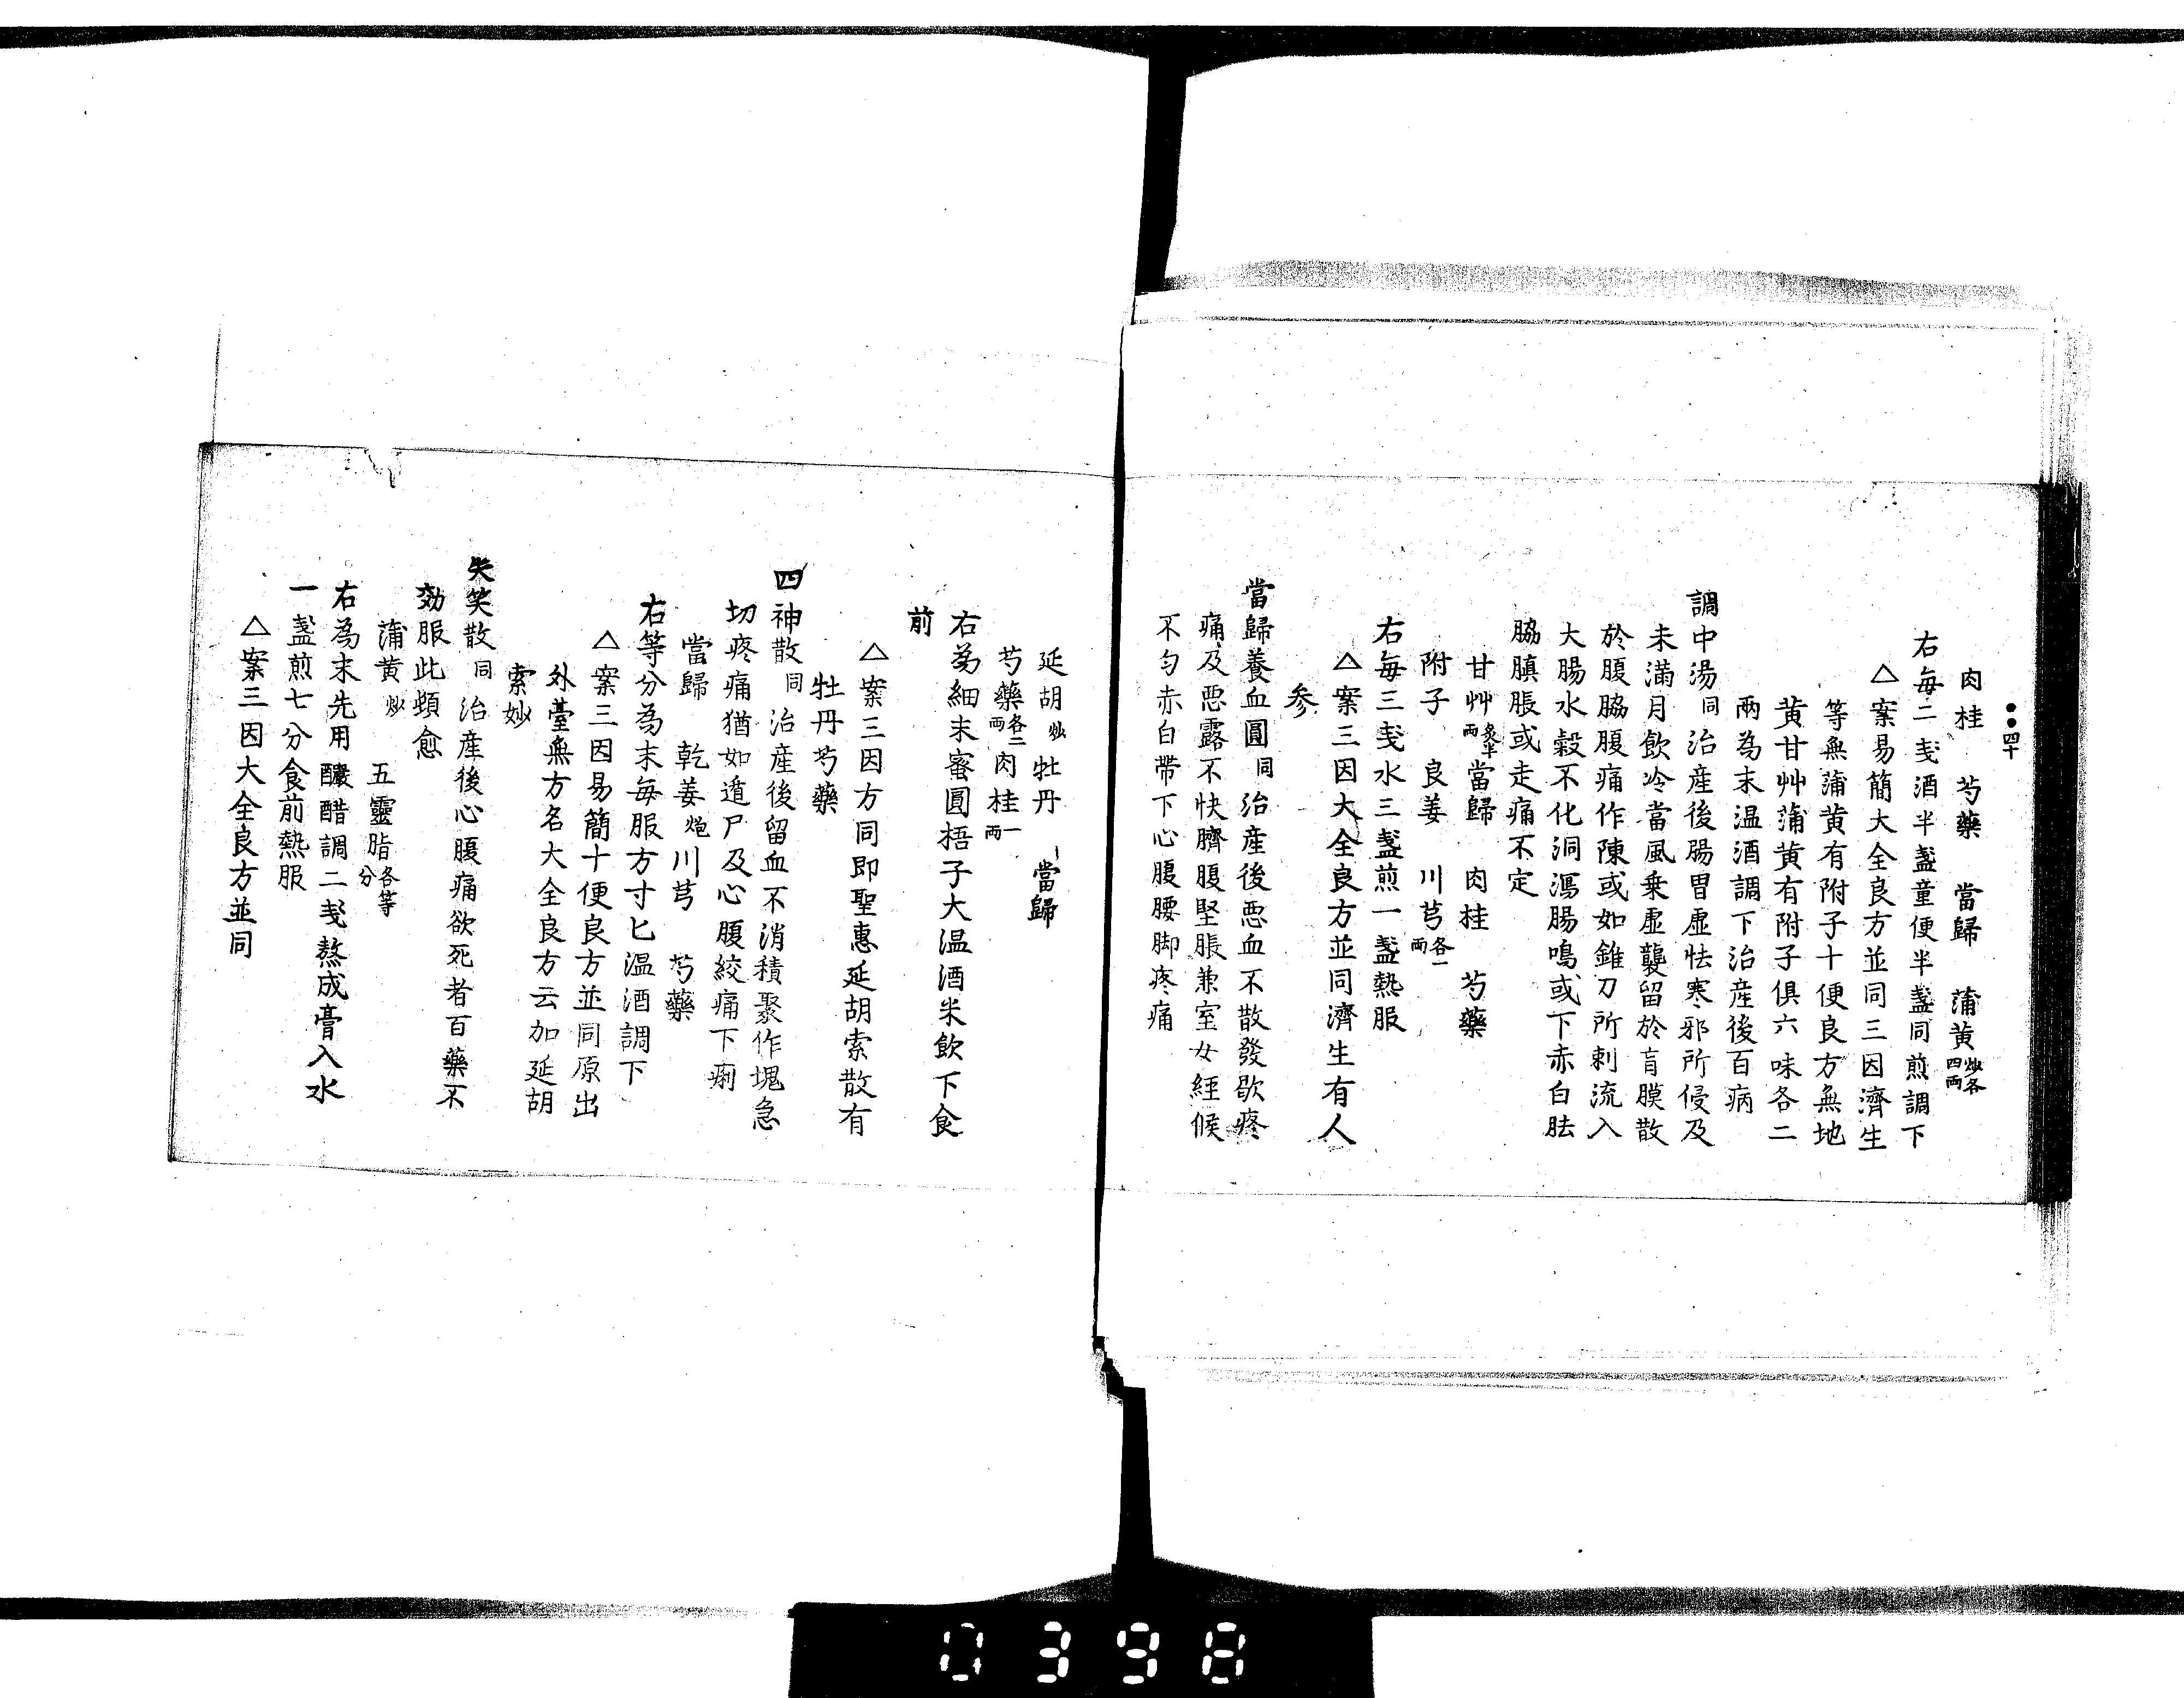 ••四十
肉桂　芍藥　當歸　蒲黄炒各四両
右毎二戔酒半盞童便半盞同煎調下
△案易簡大全良方並同三因濟生
等無蒲黄有附子十便良方無地
黄甘艸蒲黄有附子俱六味各二
兩為末温酒調下治産後百病
調中湯同治産後腸胃虚怯寒邪所侵及
未滿月飲冷當風乗虚襲留於肓膜散
於腹脇腹痛作陳或如錐刀所刺流入
大腸水穀不化洞瀉腸鳴或下赤白胠
脇䐜脹或走痛不定
甘艸炙半両當歸　肉桂　芍藥
附子　良姜　川芎各一両
右毎三戔水三盞煎一盞熱服
△案三因大全良方並同濟生有人
参
當歸養血圓同治産後惡血不散發歇疼
痛及惡露不快臍腹堅脹兼室女經候
不匀赤白帶下心腹腰脚疼痛
延胡炒牡丹　當歸
芍藥各二両肉桂一両
右為細末蜜圓梧子大温酒米飲下食
前
△案三因方同即聖惠延胡索散有
牡丹芍藥
四神散同治産後留血不消積聚作塊急
切疼痛猶如遁尸及心腹絞痛下痢
當歸　乾姜炮川芎　芍藥
右等分為末毎服方寸匕温酒調下
△案三因易簡十便良方並同原出
外臺無方名大全良方云加延胡
索妙
失笑散同治産後心腹痛欲死者百藥不
効服此頓愈
蒲黄炒　五靈脂各等分
右為末先用釅醋調二戔熬成膏入水
一盞煎七分食前熱服
△案三因大全良方並同
0398